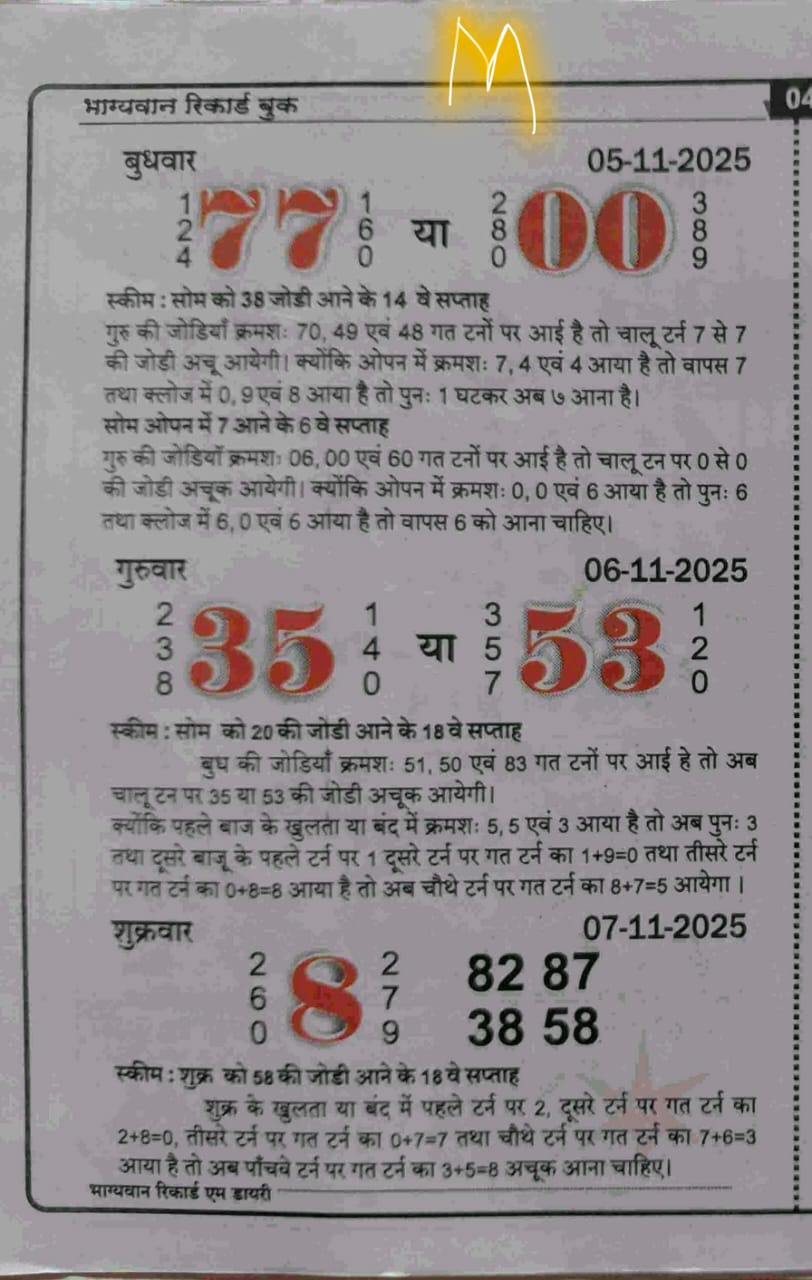 M
भाग्यवान रिकार्ड बुक 04
बुधवार 05-11-2025
1 2 4 77 1 6 0 या 2 8 0 00 3 8 9
स्कीम : सोम को 38 जोडी आने के 14 वे सप्ताह
गुरु की जोडियाँ क्रमशः 70, 49 एवं 48 गत टर्नो पर आई है तो चालू टर्न 7 से 7
की जोडी अचू आयेगी। क्योंकि ओपन में क्रमशः 7, 4 एवं 4 आया है तो वापस 7
तथा क्लोज में 0, 9 एवं 8 आया है तो पुनः 1 घटकर अब ७ आना है।
सोम ओपन में 7 आने के 6 वे सप्ताह
गुरु की जोडियाँ क्रमशः 06, 00 एवं 60 गत टनों पर आई है तो चालू टन पर 0 से 0
की जोडी अचूक आयेगी। क्योंकि ओपन में क्रमशः 0, 0 एवं 6 आया है तो पुनः 6
तथा क्लोज में 6, 0 एवं 6 आया है तो वापस 6 को आना चाहिए।
गुरुवार 06-11-2025
2 3 8 35 1 4 0 या 3 5 7 53 1 2 0
स्कीम : सोम को 20 की जोडी आने के 18 वे सप्ताह
बुध की जोडियाँ क्रमशः 51, 50 एवं 83 गत टनों पर आई हे तो अब
चालू टन पर 35 या 53 की जोडी अचूक आयेगी।
क्योंकि पहले बाज के खुलता या बंद में क्रमशः 5, 5 एवं 3 आया है तो अब पुनः 3
तथा दूसरे बाजू के पहले टर्न पर 1 दूसरे टर्न पर गत टर्न का 1+9=0 तथा तीसरे टर्न
पर गत टर्न का 0+8=8 आया है तो अब चौथे टर्न पर गत टर्न का 8+7=5 आयेगा ।
शुक्रवार 07-11-2025
2 6 0 8 2 7 9 82 87
38 58
स्कीम : शुक्र को 58 की जोडी आने के 18 वे सप्ताह
शुक्र के खुलता या बंद में पहले टर्न पर 2, दूसरे टर्न पर गत टर्न का
2+8=0, तीसरे टर्न पर गत टर्न का 0+7=7 तथा चौथे टर्न पर गत टर्न का 7+6=3
आया है तो अब पाँचवे टर्न पर गत टर्न का 3+5=8 अचूक आना चाहिए।
भाग्यवान रिकार्ड एम डायरी